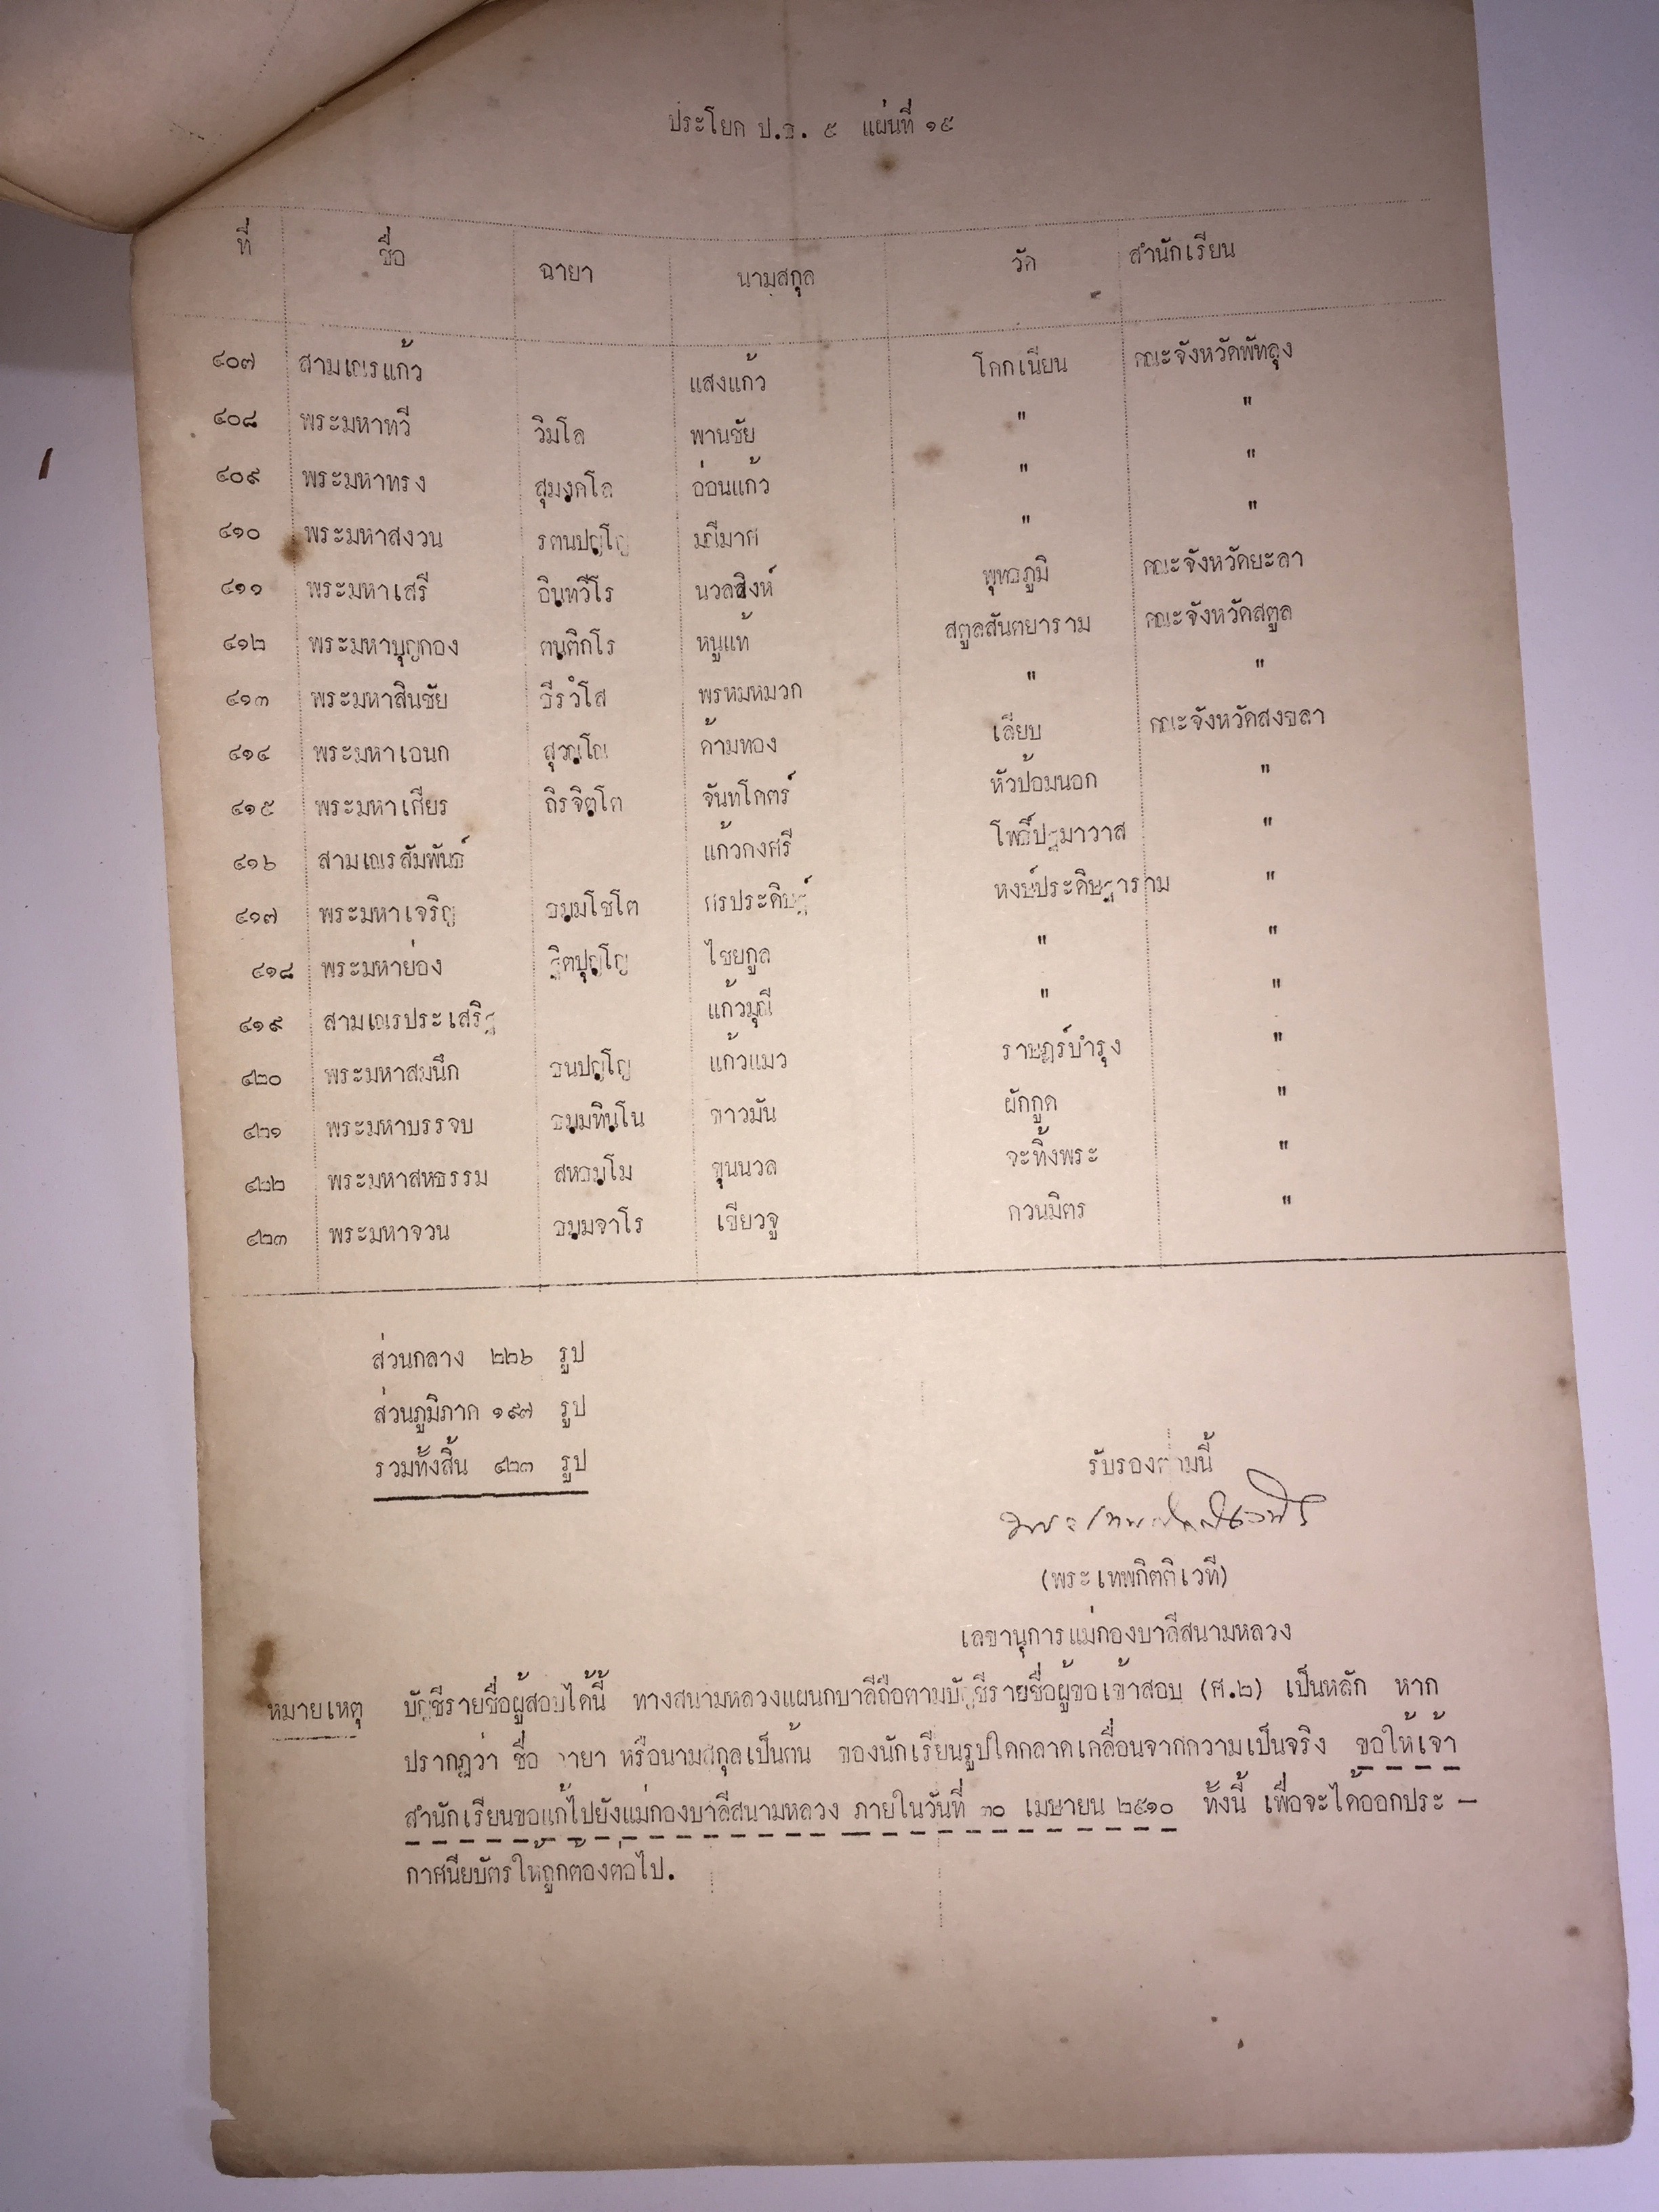 ประโยค ป.ธ. ๕ แผ่นที่ ๑๕
ที่ ชื่อ ฉายา นามสกุล วัด สำนักเรียน
๔๐๗ สามเณรแก้ว แสงแก้ว โคกเนียน คณะจังหวัดพัทลุง
๔๐๘ พระมหาทวี วิมโล พานชัย " "
๔๐๙ พระมหาทรง สุมงฺคโล อ่อนแก้ว " "
๔๑๐ พระมหาสงวน รตนปญฺโญ มณีมาศ " "
๔๑๑ พระมหาเสรี อินฺทวีโร นวลสิงห์ พุทธภูมิ คณะจังหวัดยะลา
๔๑๒ พระมหาบุญกอง ตนฺติกโร หนูแท้ สตูลสันตยาราม คณะจังหวัดสตูล
๔๑๓ พระมหาสินชัย ธีรวํโส พรหมหมวก " "
๔๑๔ พระมหาเอนก สุวณฺโณ ด้ามทอง เลียบ คณะจังหวัดสงขลา
๔๑๕ พระมหาเศียร ถิรจิตฺโต จันทโคตร์ หัวป้อมนอก "
๔๑๖ สามเณรสัมพันธ์ แก้วคงศรี โพธิ์ปฐมาวาส "
๔๑๗ พระมหาเจริญ ธมฺมโชโต ศรประดิษฐ์ หงษ์ประดิษฐาราม "
๔๑๘ พระมหาย่อง ฐิตปุญฺโญ ไชยกูล " "
๔๑๙ สามเณรประเสริฐ แก้วมุณี " "
๔๒๐ พระมหาสมนึก ธนปญฺโญ แก้วแมว ราษฎร์บำรุง "
๔๒๑ พระมหาบรรจบ ธมฺมทินฺโน ดาวมัน ผักกูด "
๔๒๒ พระมหาสหธรรม สหธมฺโม ขุนนวล จะทิ้งพระ "
๔๒๓ พระมหาจวน ธมฺมจาโร เขียวจู ควนมิตร "
ส่วนกลาง ๒๒๖ รูป
ส่วนภูมิภาค ๑๙๗ รูป
รวมทั้งสิ้น ๔๒๓ รูป
รับรองตามนี้
(พระเทพกิตติเวที)
เลขานุการแม่กองบาลีสนามหลวง
หมายเหตุ บัญชีรายชื่อผู้สอบได้นี้ ทางสนามหลวงแผนกบาลีถือตามบัญชีรายชื่อผู้ขอเข้าสอบ (ศ.๒) เป็นหลัก หาก
ปรากฏว่า ชื่อ ฉายา หรือนามสกุลเป็นต้น ของนักเรียนรูปใดคลาดเคลื่อนจากความเป็นจริง ขอให้เจ้า
สำนักเรียนขอแก้ไปยังแม่กองบาลีสนามหลวง ภายในวันที่ ๓๐ เมษายน ๒๕๑๐ ทั้งนี้ เพื่อจะได้ออกประ –
กาศนียบัตรให้ถูกต้องต่อไป.